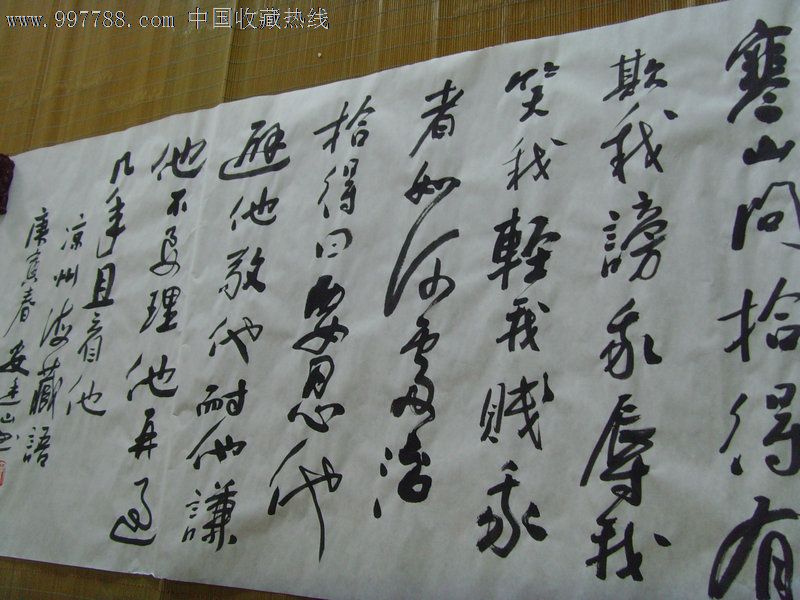 www.997788.com 中国收藏热线
寒山問拾得有
欺我謗我辱我
笑我輕我賤我
者如何處治
拾得曰要忍他
避他敬他耐他謙
他不要理他再過
几年且看他
凉州海藏語
庚寅春 安